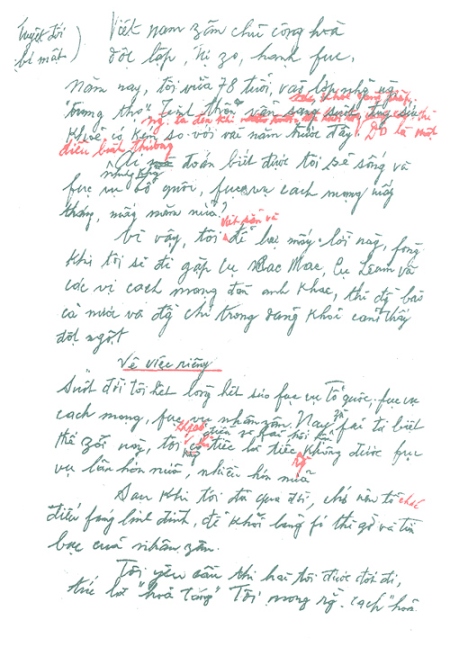 Tuyệt đối
bí mật
Việt nam zân chủ cộng hoà
độc lập, tự zo, hạnh fúc.
Năm nay, tôi vừa 78 tuổi, vào lớp những ng.
"trung thọ". Tinh thần vẫn sáng suốt,
khoẻ có kém so với vài năm trước đây. Đó là một
điều bình thường
Ai mà đoán biết được tôi sẽ sống và
fục vụ tổ quốc, fục vụ cách mạng mấy
tháng, mấy năm nữa?
Vì vậy, tôi để lại mấy lời này, fòng
khi tôi sẽ đi gặp cụ Các Mác, cụ Lênin và
các vị cách mạng đàn anh khác, thì đồng bào
cả nước và đồng chí trong đảng khỏi cảm thấy
đột ngột.
Về việc riêng
Suốt đời tôi hết lòng hết sức fục vụ Tổ quốc, fục vụ
cách mạng, fục vụ nhân zân. Nay fải từ biệt
thế zới này, tôi tiếc là tiếc không được fục
vụ lâu hơn nữa, nhiều hơn nữa
Sau khi tôi đã qua đời, chớ nên tổ chức
điếu fúng linh đình, để khỏi lãng fí thì giờ và tiền
bạc của nhân zân.
Tôi yêu cầu thi hài tôi được đốt đi,
tức là "hoả táng". Tôi mong rằng cách "hoả